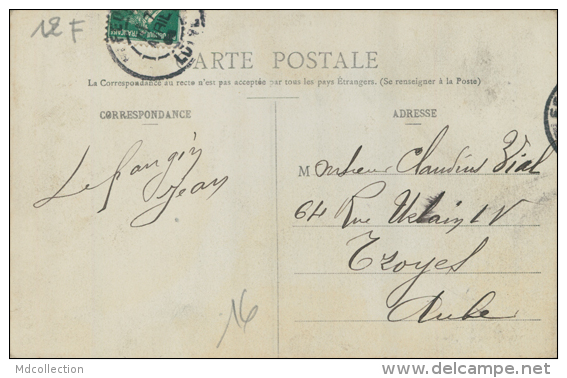 12 F
CARTE POSTALE
La Correspondance au recto n'est pas acceptée par tous les pays Étrangers. (Se renseigner à la Poste)
CORRESPONDANCE
ADRESSE
Jean
Monsieur Claudius Vial
64 Rue Urbain IV
Troyes
Aube
16
Mdcollection
delcampe.net